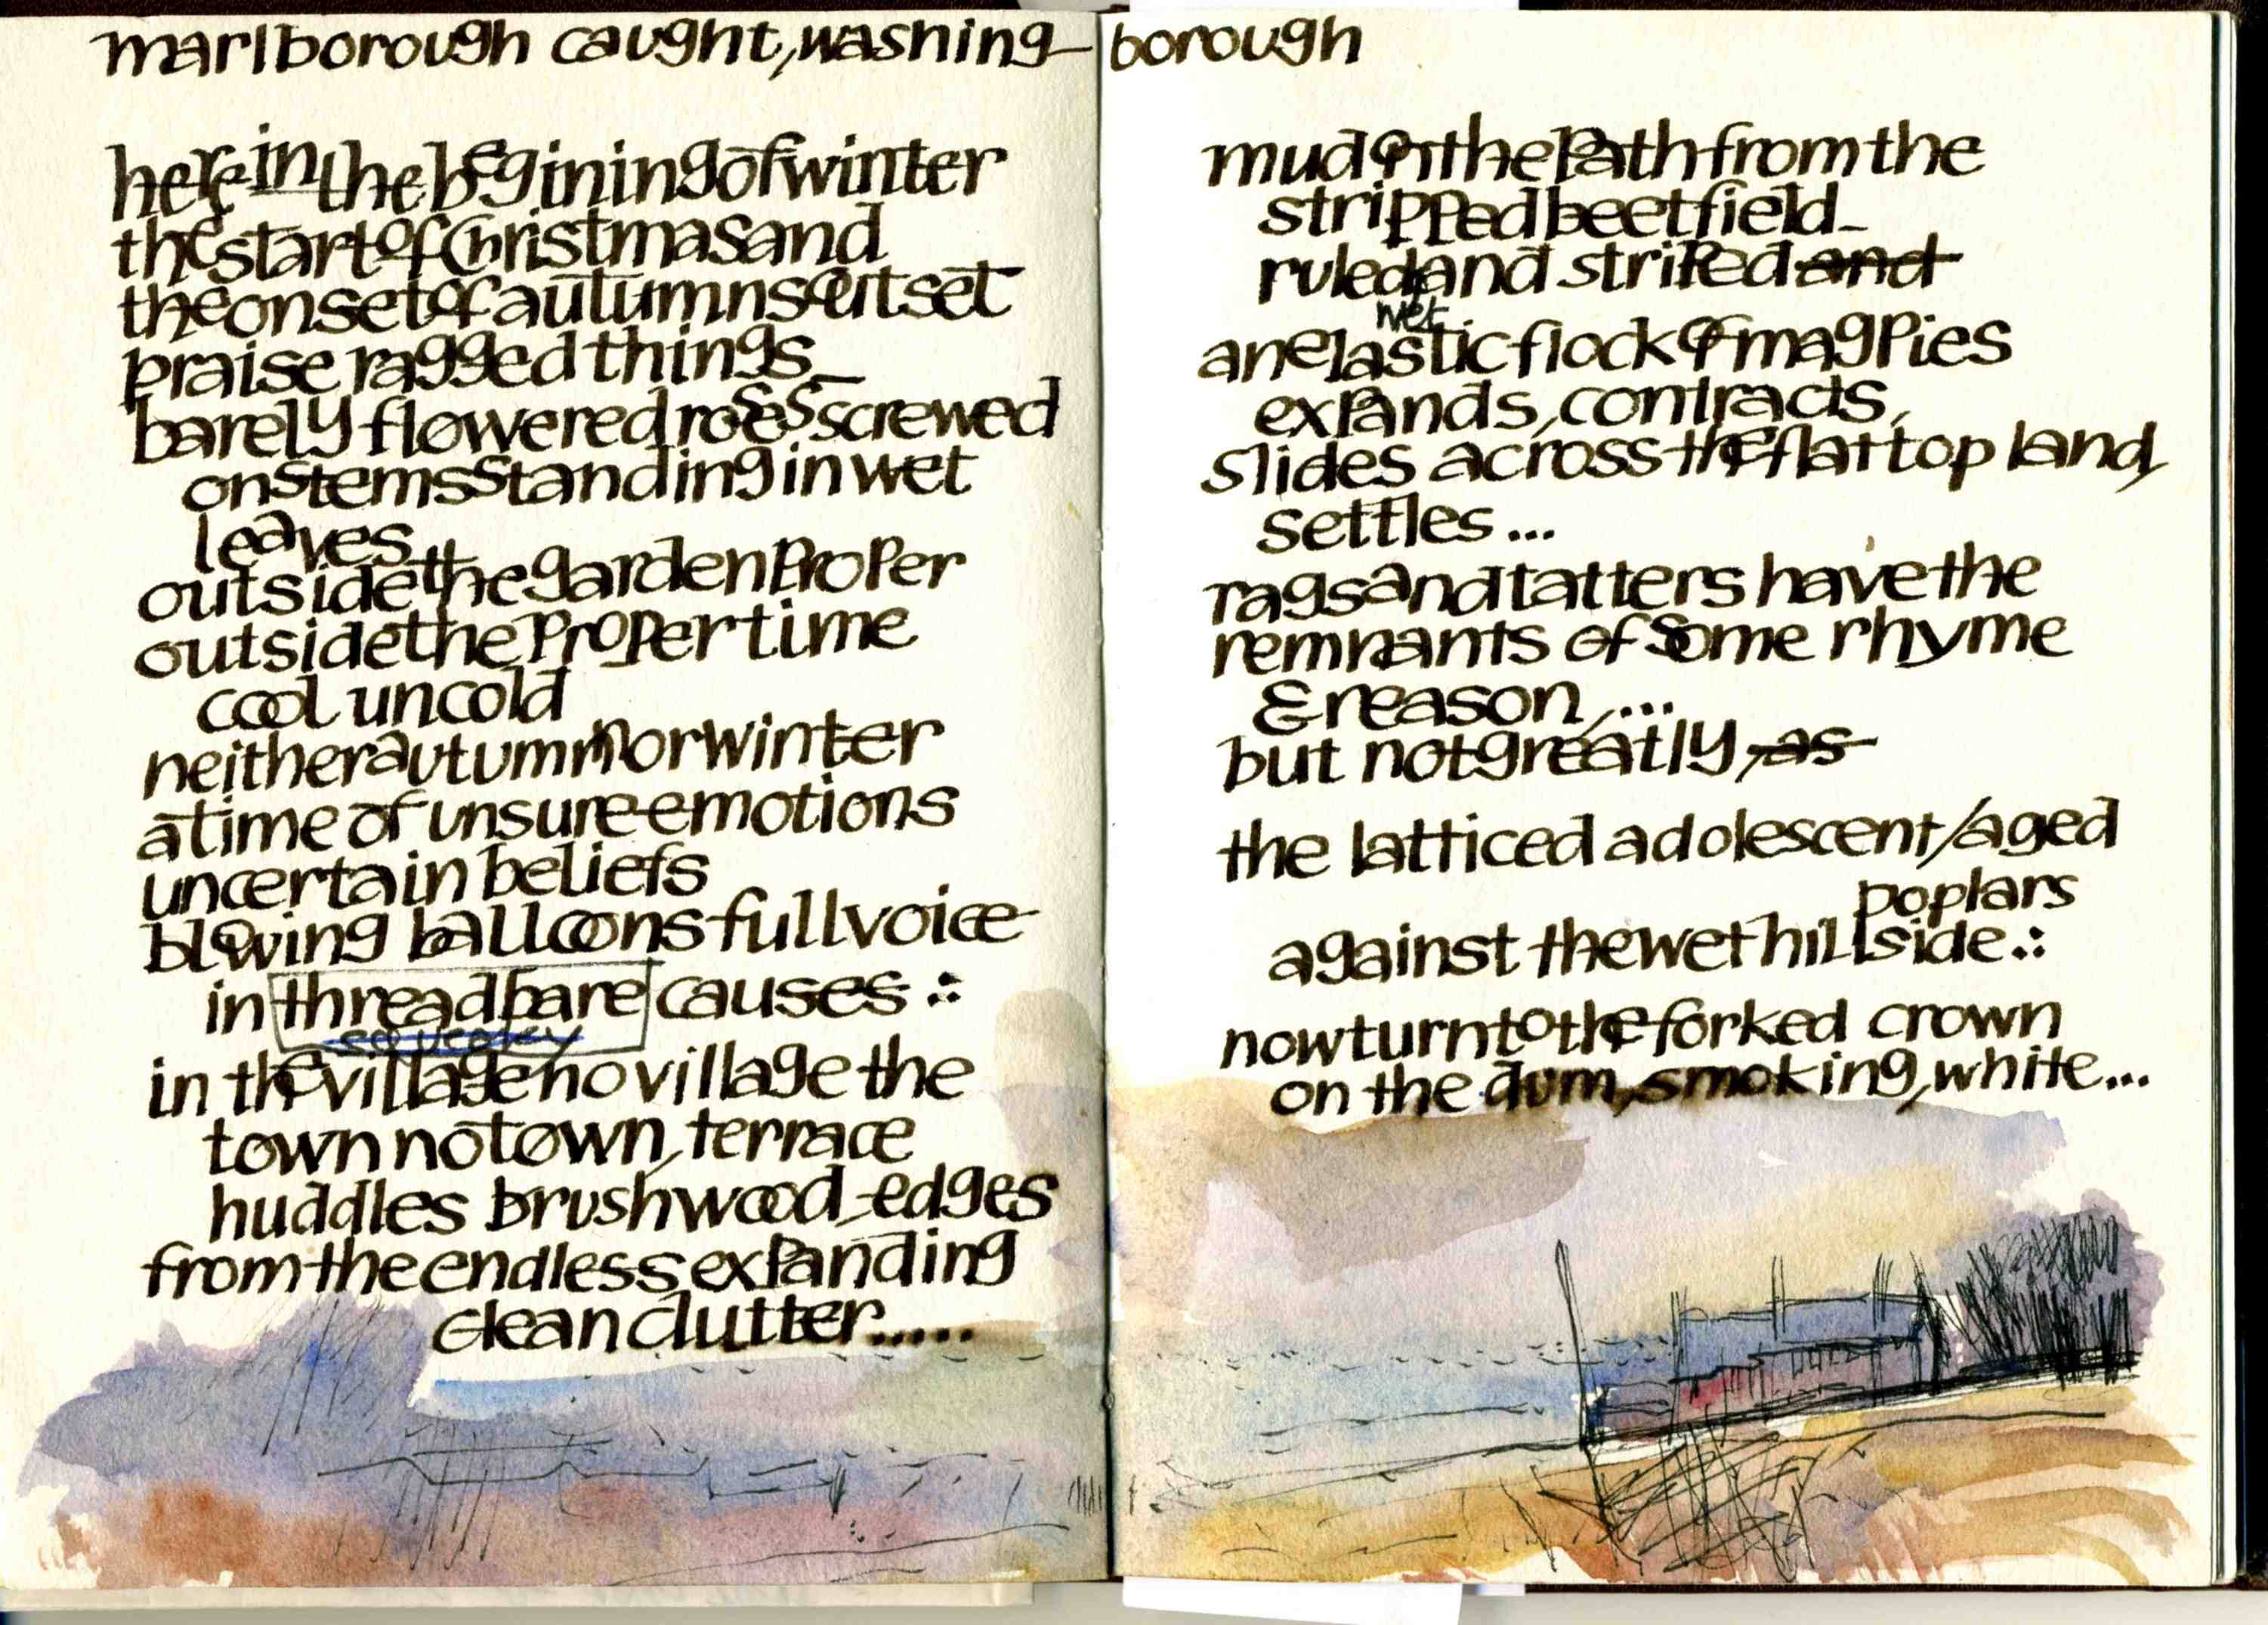 marlborough caught, washing-borough
here in the begining of winter
the start of Christmas and
the onset of autumns outset
praise ragged things_
barely flowered roses screwed
on stems standing in wet
leaves
outside the garden proper
outside the proper time
cool uncold
neither autumn nor winter
a time of unsure emotions
uncertain beliefs
blowing balloons full voice
in threadbare causes :
in the village no village the
town no town, terrace
huddles brushwood-edges
from the endless expanding
clean clutter.....
mud on the path from the
stripped beetfield_
ruled and striped and
wet
an elastic flock of magpies
expands, contracts,
slides across the flat top land,
settles...
rags and tatters have the
remnants of some rhyme
& reason,...
but not greatly, as
the latticed adolescent/aged
poplars
against the wet hillside.:
now turn to the forked crown
on the dum, smoking, white...